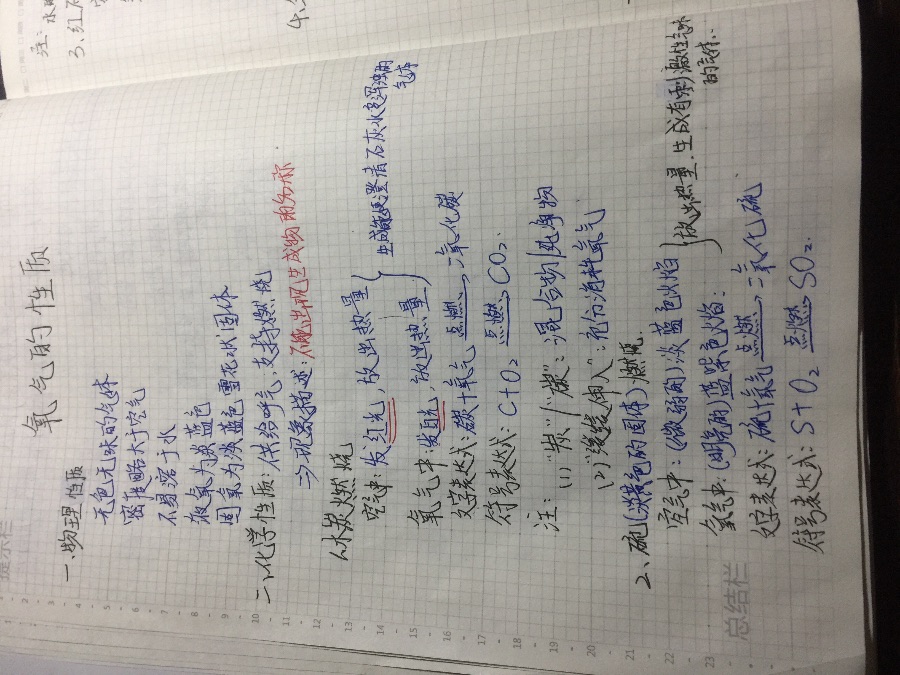 氧气的性质
一、物理性质
无色无味的气体
密度略大于空气
不易溶于水
液氧为淡蓝色
固氧为淡蓝色雪花状固体
二、化学性质：供给呼气，支持燃烧
⇒现象描述：不能出现生成物的名称
1、木炭燃烧
空气中：发红光，放出热量
氧气中：发白光，放出热量
} 生成能使澄清石灰水变浑浊的气体
文字表达式：碳+氧气 点燃→ 二氧化碳
符号表达式：C+O₂ 点燃→ CO₂
注：(1)“炭”/“碳”：混合物/纯净物
(2)“缓缓伸入”：充分消耗氧气
2、硫(淡黄色的固体)燃烧
空气中：(微弱的)淡蓝色火焰
氧气中：(明亮的)蓝紫色火焰
} 放出热量，生成有刺激性气味的气体
文字表达式：硫+氧气 点燃→ 二氧化硫
符号表达式：S+O₂ 点燃→ SO₂
总结栏
4
5
6
7
8
9
10
11
12
13
14
15
16
17
18
19
20
21
22
23
3、红